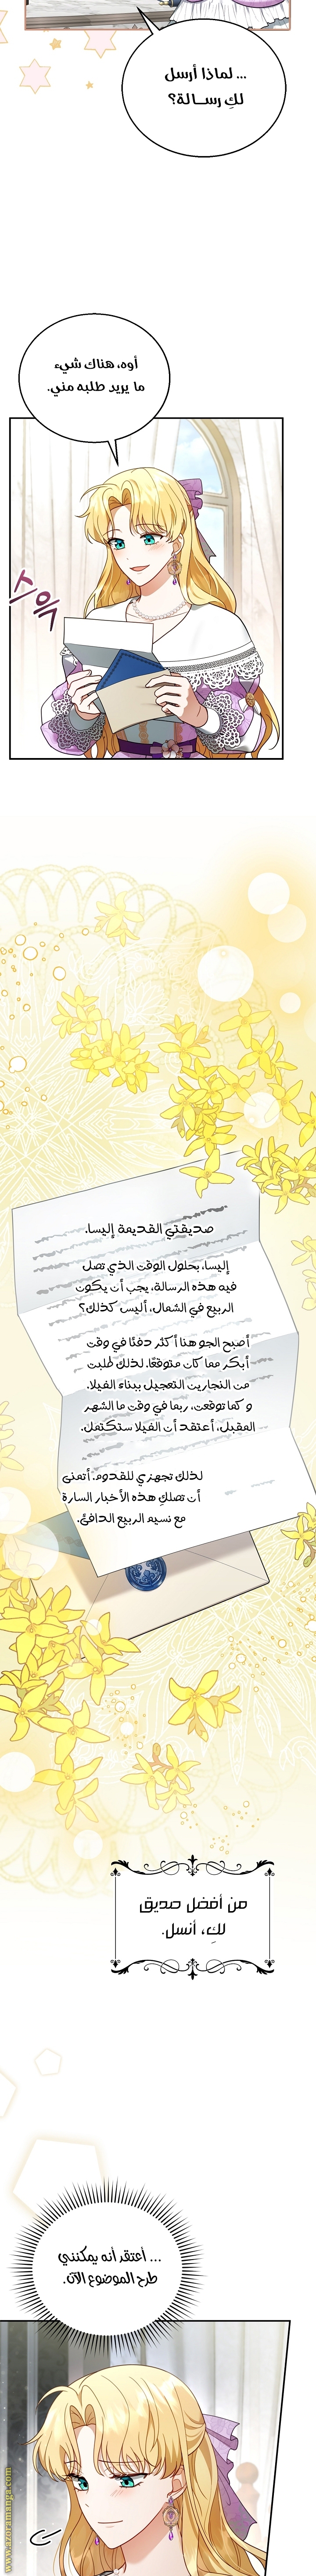 ... لماذا أرسل
لكِ رسـالة؟
أوه، هناك شيء
ما يريد طلبه مني.
스윽
صديقتي القديمة إليسا،
إليسا، بحلول الوقت الذي تصل
فيه هذه الرسالة، يجب أن يكون
الربيع في الشمال، أليس كذلك؟
أصبح الجو هنا أكثر دفئًا في وقت
أبكر مما كان متوقعًا، لذلك طلبت
من النجارين التعجيل ببناء الفيلا.
وكما توقعت، ربما في وقت ما الشهر
المقبل، أعتقد أن الفيلا ستكتمل.
لذلك تجهزي للقدوم. أتمنى
أن تصلكِ هذه الأخبار السارة
مع نسيم الربيع الدافئ.
من أفضل صديق
لكِ، أنسل.
... أعتقد أنه يمكنني
طرح الموضوع الآن.
www.azoramanga.com